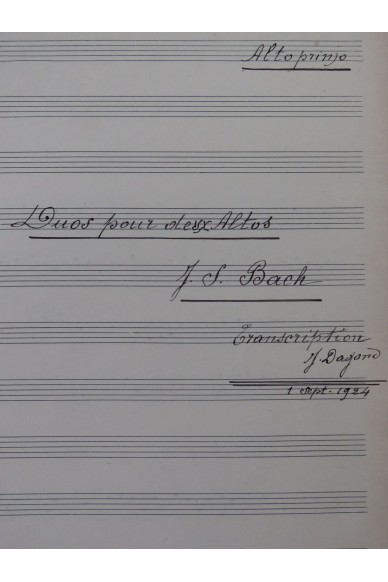 Alto primo
Duos pour deux Altos
J. S. Bach
Transcription
J. Dagond
1 Sept. 1924